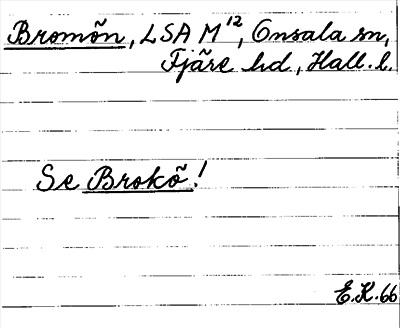 Bromõn, LSA M¹², Onsala sn,
Fjäre hd, Hall. l.
Se Brokõ!
E.K.66